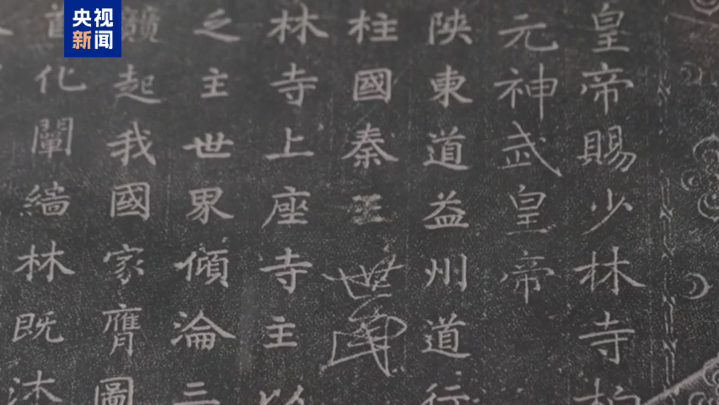 央视
新闻
皇帝賜少林寺柏
元神武皇帝
陝東道益州道行
柱國秦王世民
林寺上座寺主以
乏主世界傾淪三
起我國家膺圖
化闡緇林既沐